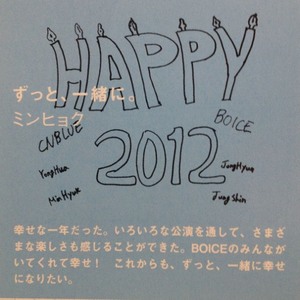 HAPPY
ずっと、一緒に。
ミンヒョク
CNBLUE
BOICE
2012
YongHwa
JungHyun
MinHyuk
JungShin
幸せな一年だった。いろいろな公演を通して、さまざ
まな楽しさも感じることができた。BOICEのみんなが
いてくれて幸せ！ これからも、ずっと、一緒に幸せ
になりたい。